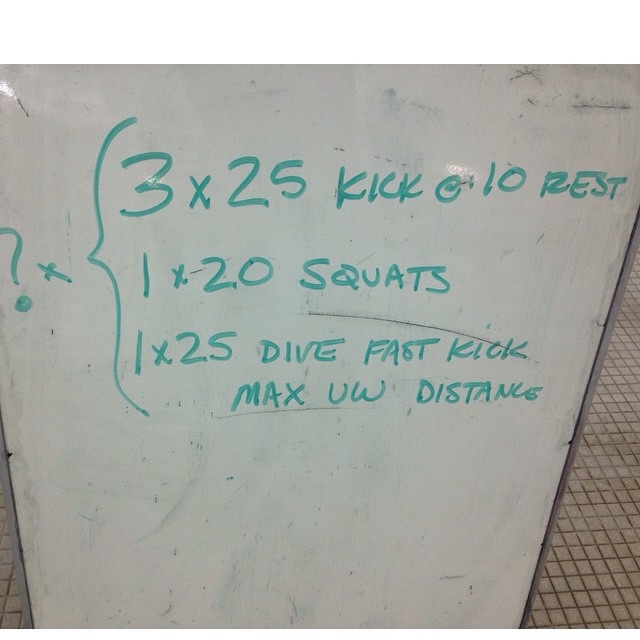 ? x { 3 x 25 KICK @ :10 REST
1 x 20 SQUATS
1 x 25 DIVE FAST KICK
MAX UW DISTANCE